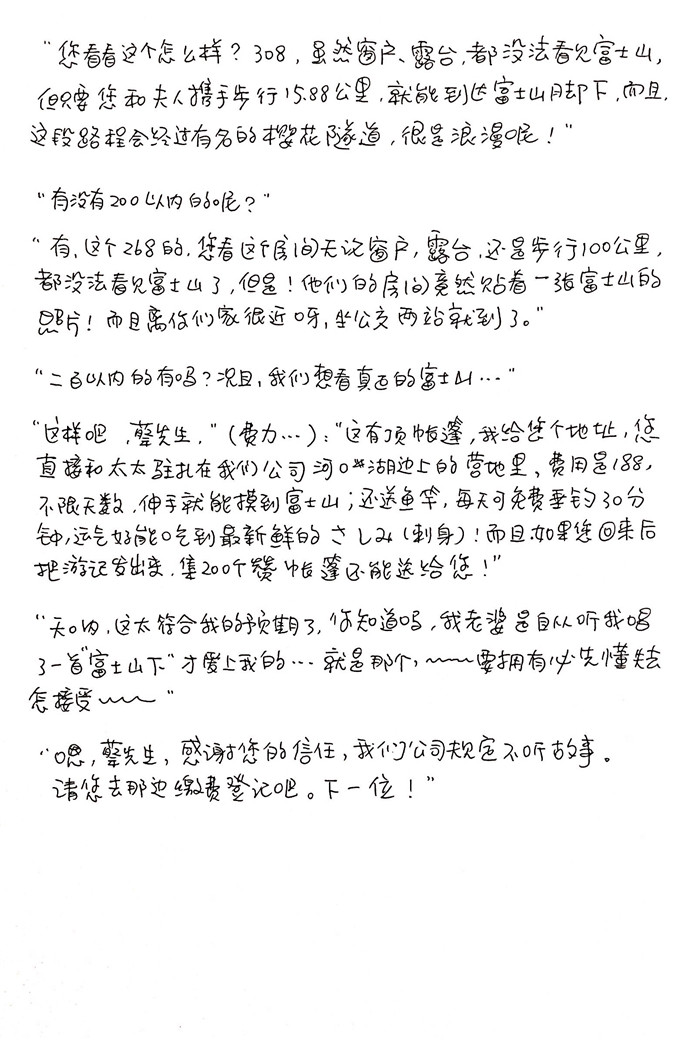 “您看看这个怎么样？308，虽然窗户、露台，都没法看见富士山，
但只要您和夫人携手步行15.88公里，就能到达富士山脚下，而且，
这段路程会经过有名的樱花隧道，很是浪漫呢！”
“有没有200以内的呢？”
“有，这个268的，您看这个房间无论窗户，露台，还是步行100公里，
都没法看见富士山了，但是！他们的房间竟然贴着一张富士山的
照片！而且离你们家很近呀，坐公交两站就到了。”
“二百以内的有吗？况且，我们想看真正的富士山…”
“这样吧，蔡先生，”（费力…）：“这有顶帐篷，我给您个地址，您
直接和太太驻扎在我们公司河口*湖边上的营地里，费用是188，
不限天数，伸手就能摸到富士山；还送鱼竿，每天可免费垂钓30分
钟，运气好能吃到最新鲜的さしみ（刺身）！而且如果您回来后
把游记发出来，集200个赞帐篷还能送给您！”
“天呐，这太符合我的预期了，你知道吗，我老婆是自从听我唱
了一首“富士山下”才爱上我的… 就是那个，~~~要拥有必先懂失去
怎接受~~~”
“嗯，蔡先生，感谢您的信任，我们公司规定不听故事。
请您去那边缴费登记吧。下一位！”